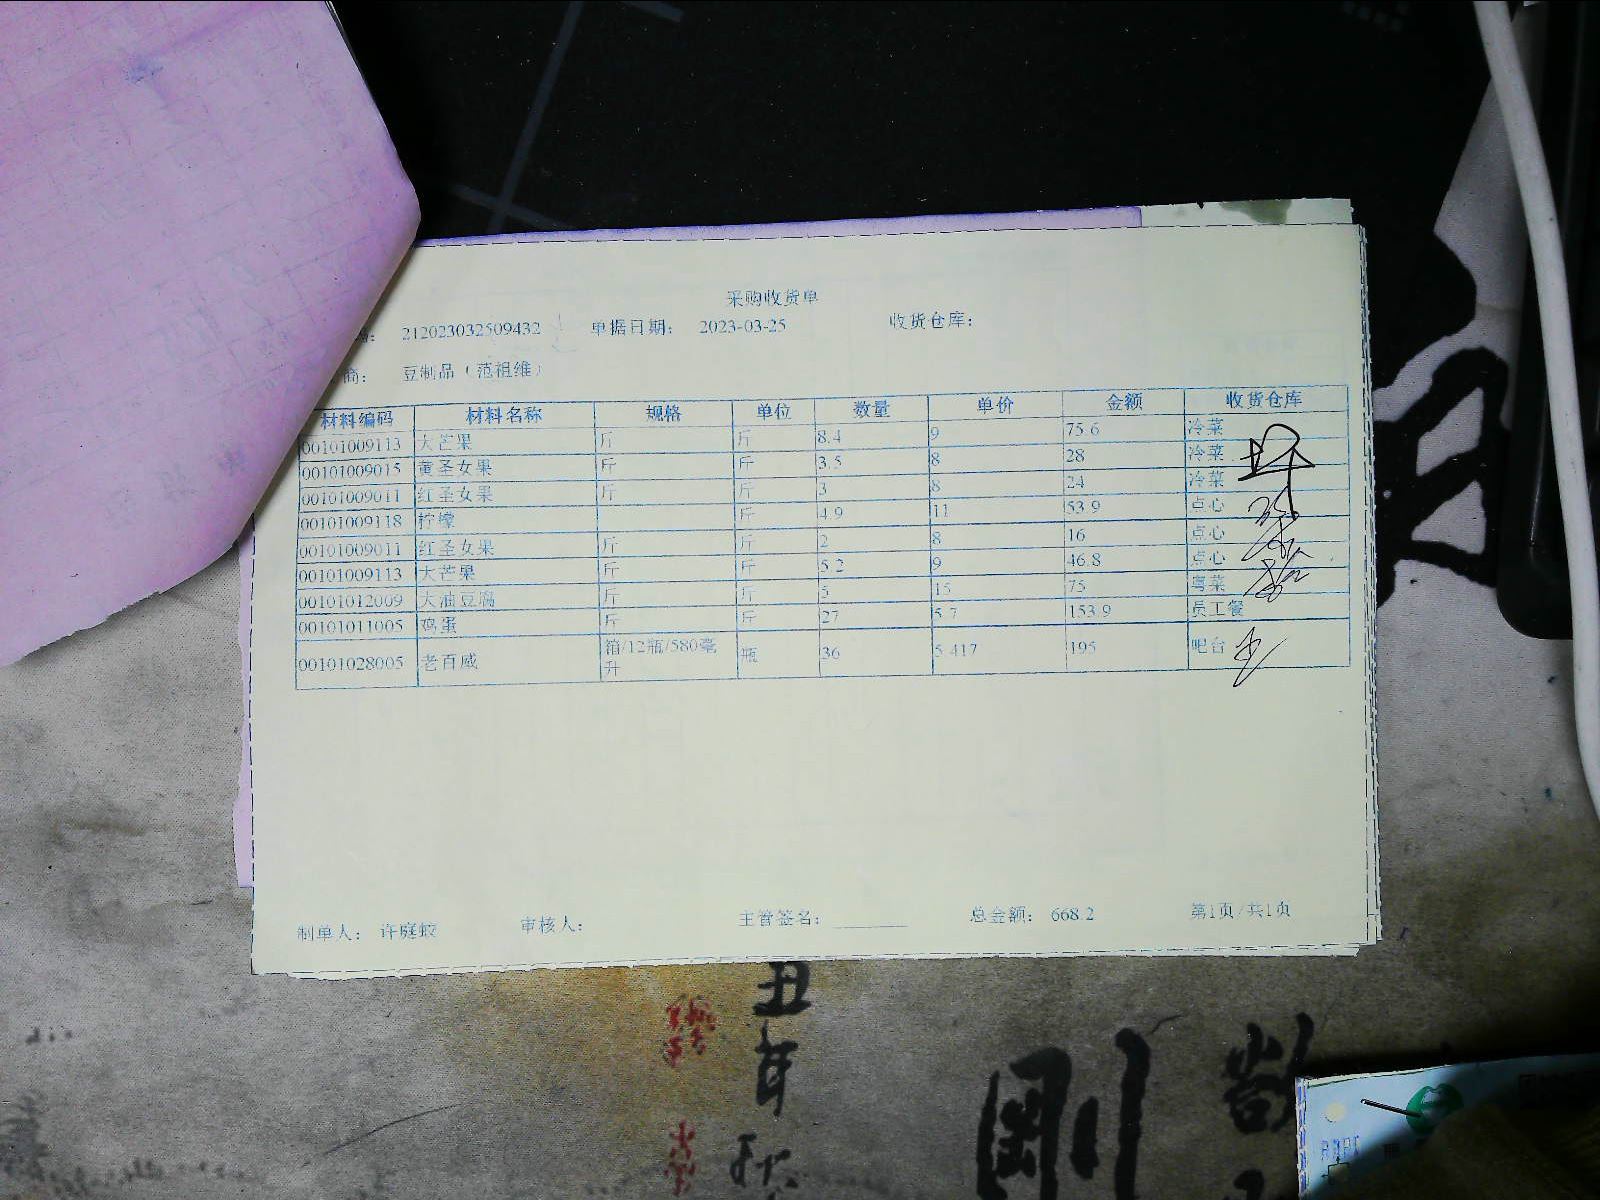 采购收货单
212023032509432 单据日期： 2023-03-25 收货仓库：
商： 豆制品（范祖维）
材料编码 材料名称 规格 单位 数量 单价 金额 收货仓库
00101009113 大芒果 斤 斤 8.4 9 75.6 冷菜
00101009015 黄圣女果 斤 斤 3.5 8 28 冷菜
00101009011 红圣女果 斤 斤 3 8 24 冷菜
00101009118 柠檬 斤 4.9 11 53.9 点心
00101009011 红圣女果 斤 斤 2 8 16 点心
00101009113 大芒果 斤 斤 5.2 9 46.8 点心
00101012009 大油豆腐 斤 斤 5 15 75 粤菜
00101011005 鸡蛋 斤 斤 27 5.7 153.9 员工餐
00101028005 老百威 箱/12瓶/580毫升 瓶 36 5.417 195 吧台
制单人： 许庭蛟 审核人： 主管签名： 总金额： 668.2 第1页/共1页
丑
年
秋
剛